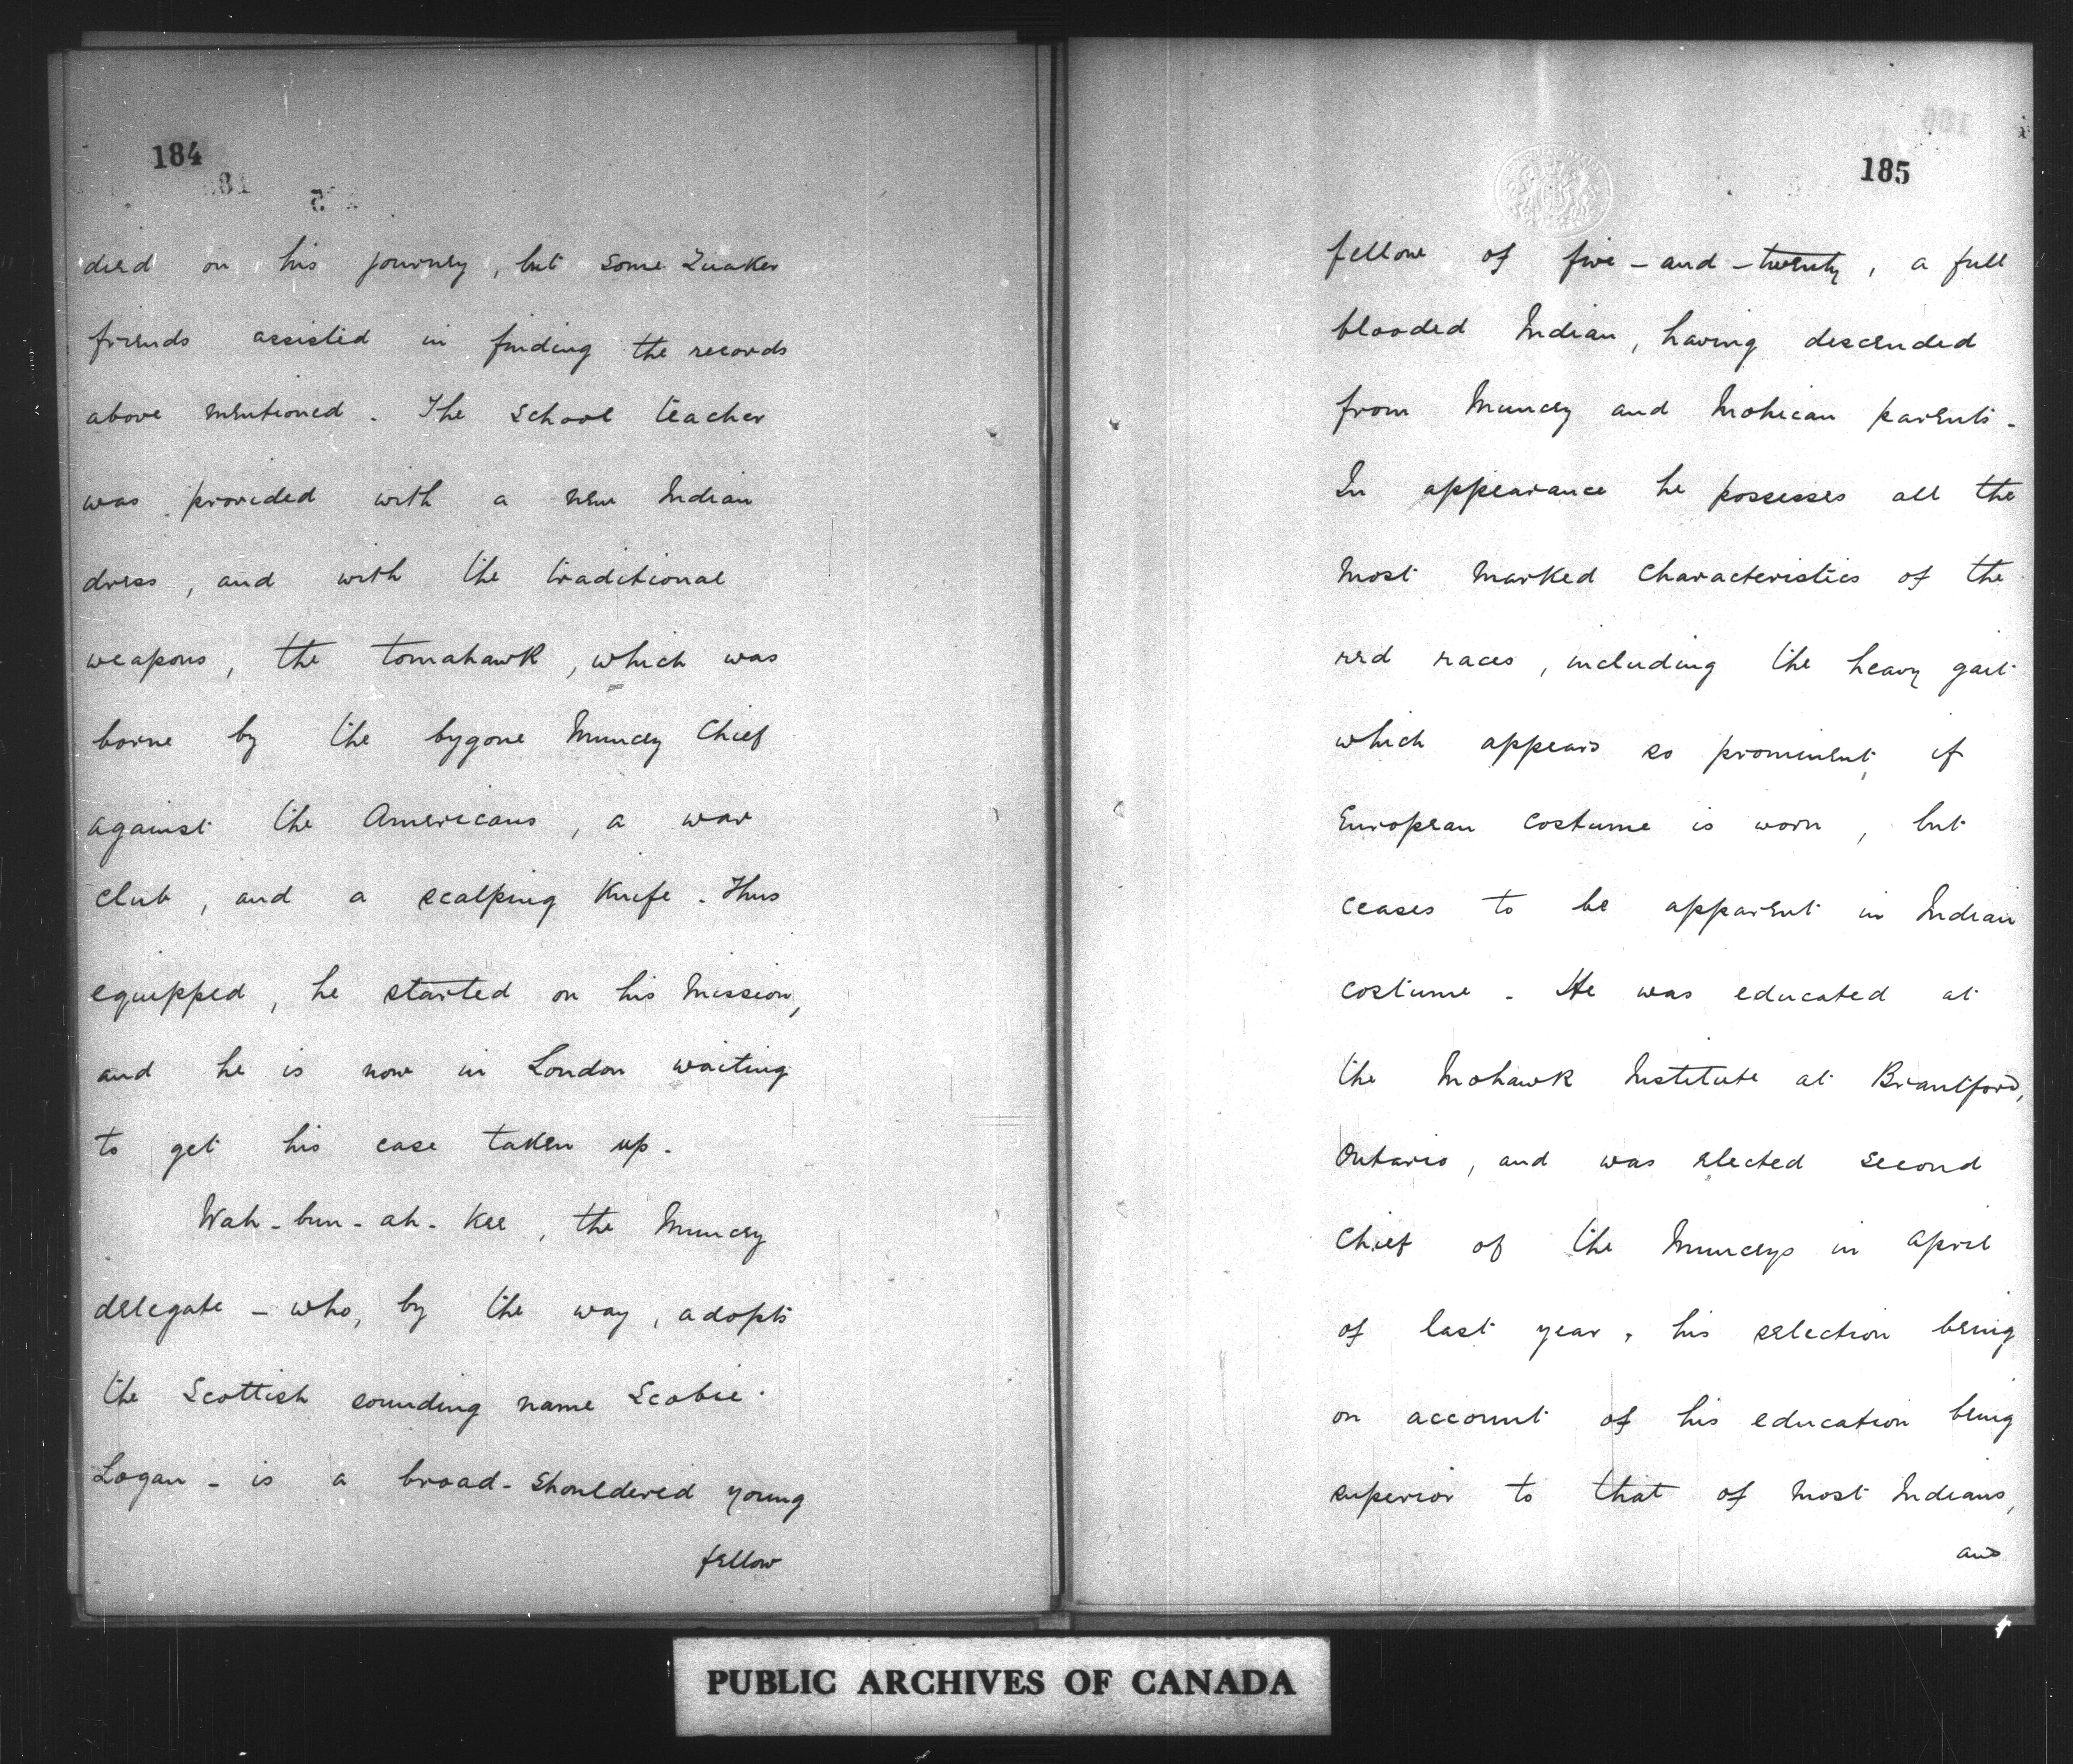 184
died on his journey, but some Quaker
friends assisted in finding the records
above mentioned. The school teacher
was provided with a new Indian
dress, and with the traditional
weapons, the tomahawk, which was
borne by the bygone Muncey Chief
against the Americans, a war
club, and a scalping Knife. Thus
equipped, he started on his mission,
and he is now in London waiting
to get his case taken up.
Wah-bun-ah-Kee, the Muncey
delegate - who, by the way, adopts
the Scottish sounding name Scobie
Logan - is a broad-shouldered young
fellow
185
fellow of five-and-twenty, a full
blooded Indian, having descended
from Muncey and Mohican parents.
In appearance he possesses all the
most marked characteristics of the
red races, including the heavy gait
which appears so prominent, if
European costume is worn, but
ceases to be apparent in Indian
costume. He was educated at
the Mohawk Institute at Brantford,
Ontario, and was elected second
Chief of the Munceys in April
of last year, his selection being
on account of his education being
superior to that of most Indians,
and
PUBLIC ARCHIVES OF CANADA